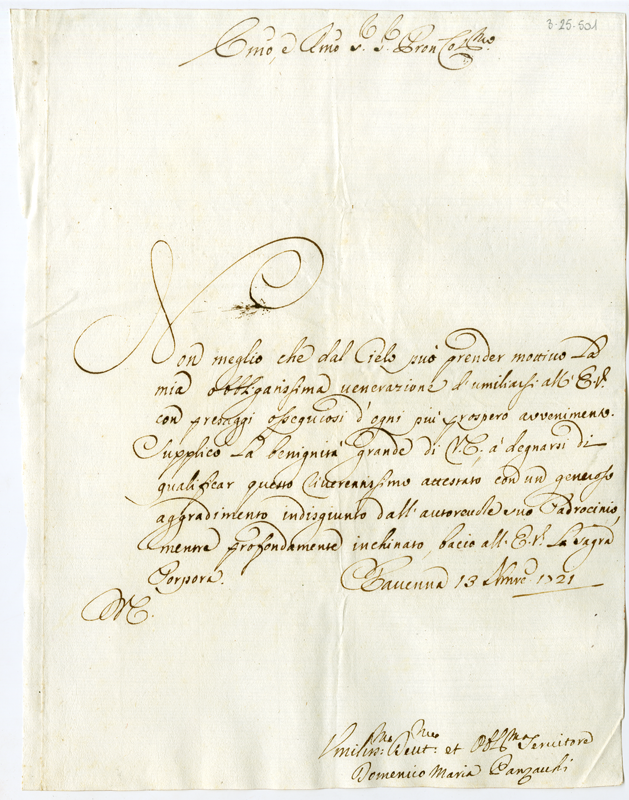 3-25-501
Emo, e Rmo Sr. Sr. Pron Colmo.
Non meglio che dal Cielo può prender motivo la
mia obbligatissima venerazione d'umiliarsi all'E.V.
con presaggi ossequiosi d'ogni più prospero avvenimento.
Supplico la benignità grande di V.E. à degnarsi di
qualificar questo riverentissimo attestato con un generoso
aggradimento indisgiunto dall'autorevole suo Padrocinio,
mentre profondamente inchinato, bacio all'E.V. la Sagra
Porpora. Ravenna 13 Xmbre 1721
Umiliss.mo Devot.mo et Obblg.mo Servitore
Domenico Maria Panzauchi